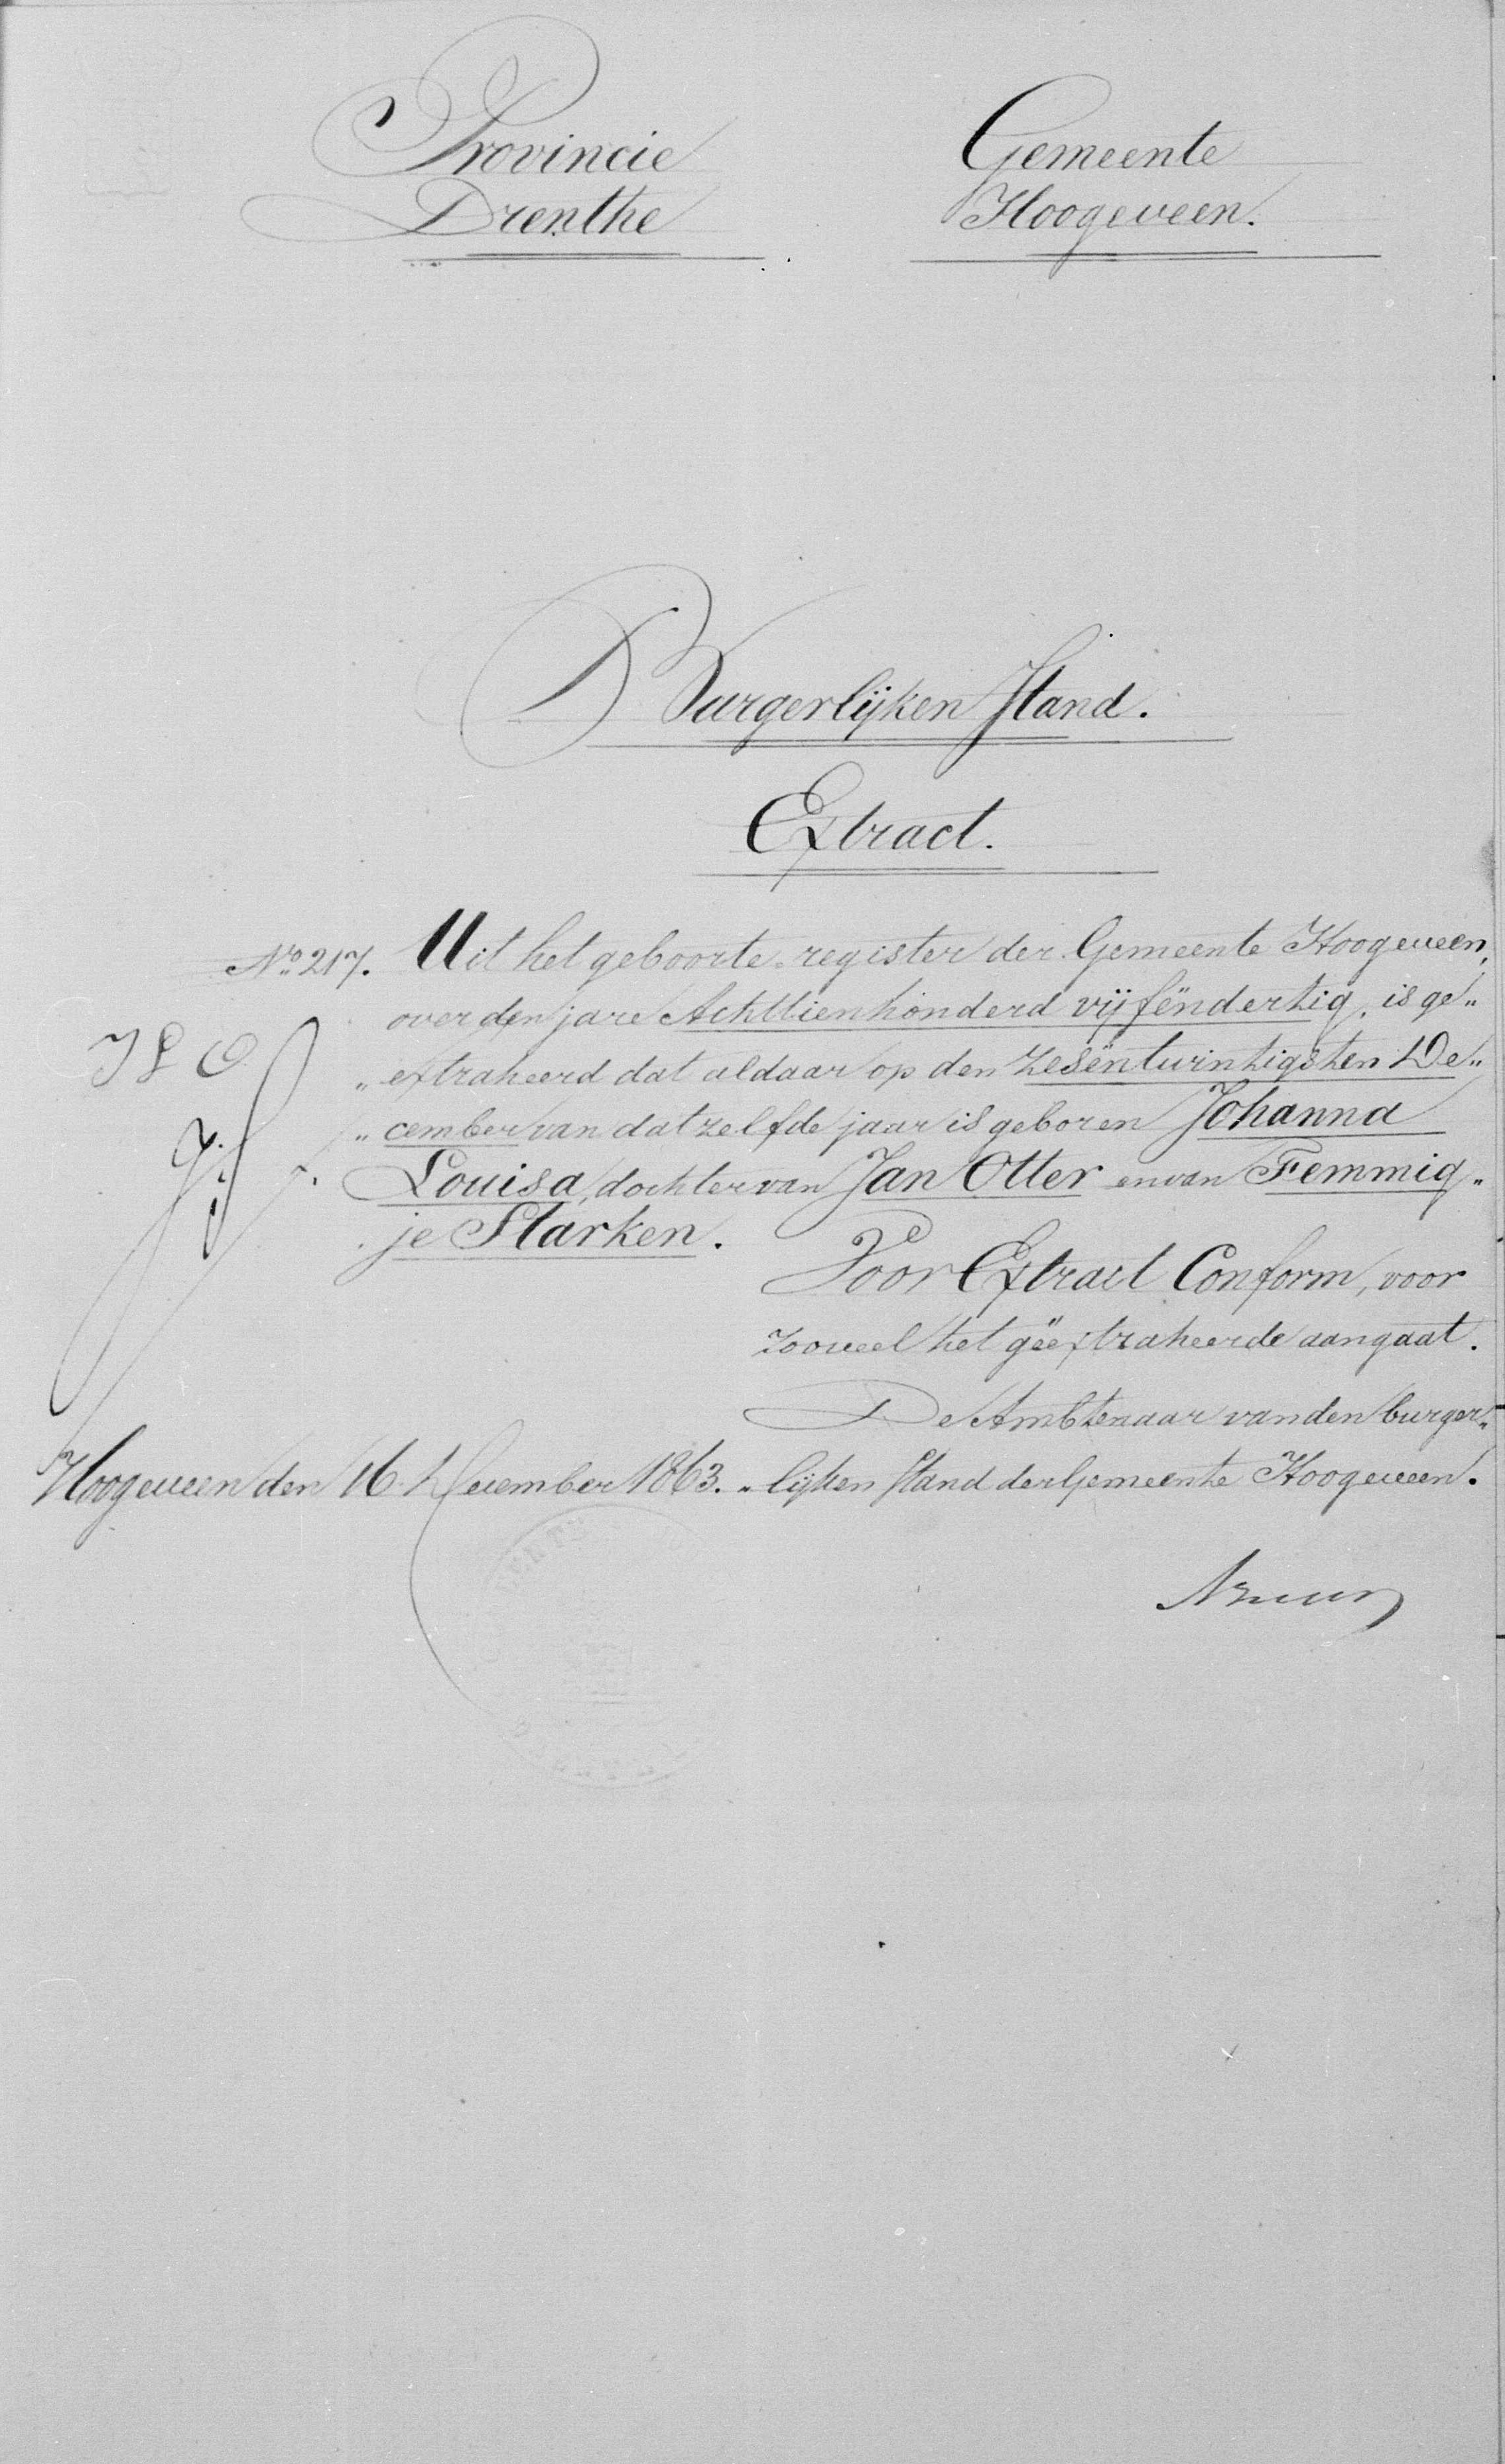 Provincie
Drenthe
Gemeente
Hoogeveen.
Burgerlijken Stand.
Extract.
No 217. Uit het geboorte-register der Gemeente Hoogeveen,
over den jare Achttienhonderd vijfëndertig, is ge„
J L O
„extraheerd dat aldaar op den zesëntwintigsten De„
„cember van datzelfde jaar is geboren Johanna
Louisa, dochter van Jan Otter en van Femmig„
je Starken.
Voor Extract Conform, voor
zooveel het geëxtraheerde aangaat.
De Ambtenaar van den burger„
Hoogeveen den 16 December 1863. „lijken Stand der Gemeente Hoogeveen.